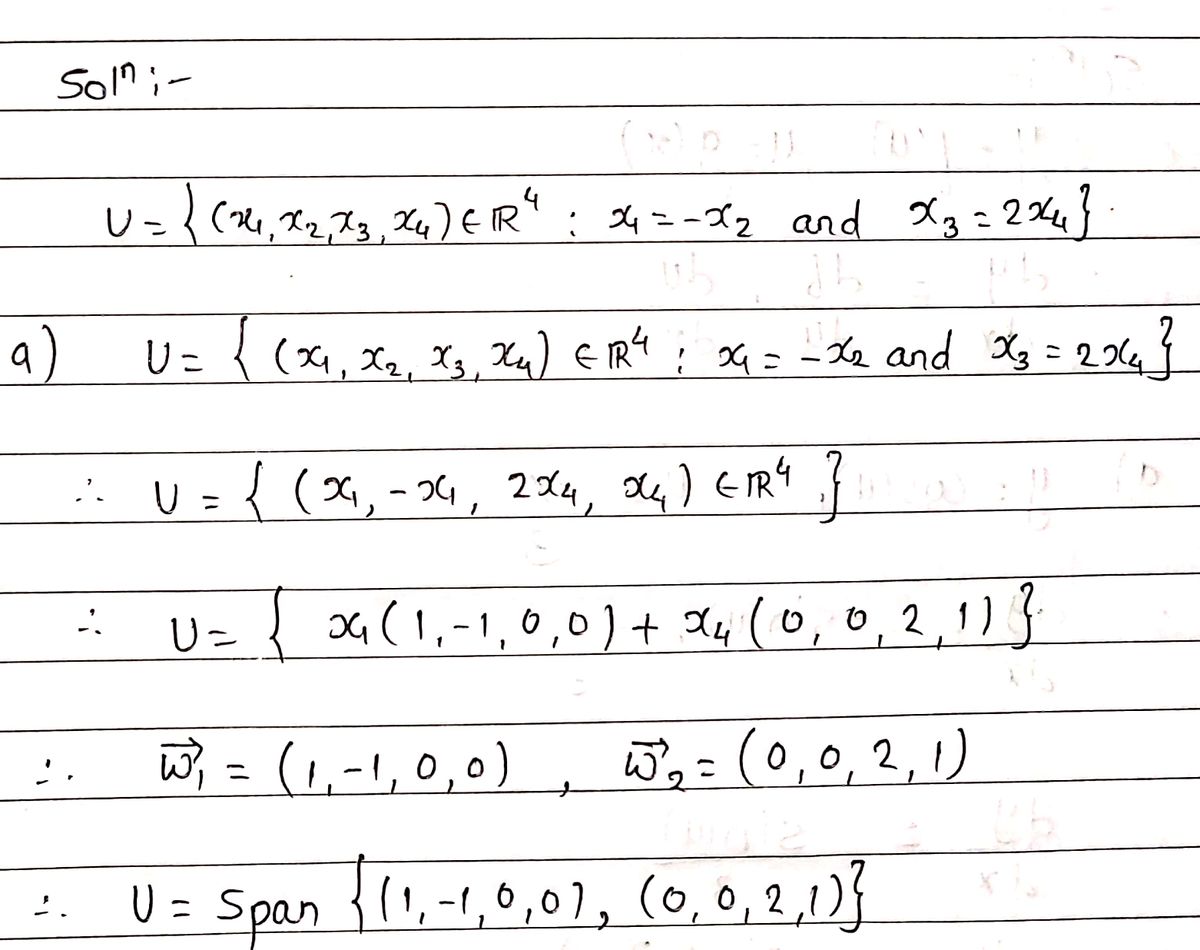 Solⁿ :-
U = { (x₁, x₂, x₃, x₄) ∈ ℝ⁴ : x₁ = -x₂ and x₃ = 2x₄ }.
a) U = { (x₁, x₂, x₃, x₄) ∈ ℝ⁴ : x₁ = -x₂ and x₃ = 2x₄ }
∴ U = { (x₁, -x₁, 2x₄, x₄) ∈ ℝ⁴ }
∴ U = { x₁(1,-1,0,0) + x₄(0, 0, 2, 1) }
∴ w⃗₁ = (1,-1,0,0) , w⃗₂ = (0,0,2,1)
∴ U = Span {(1,-1,0,0), (0,0,2,1)}